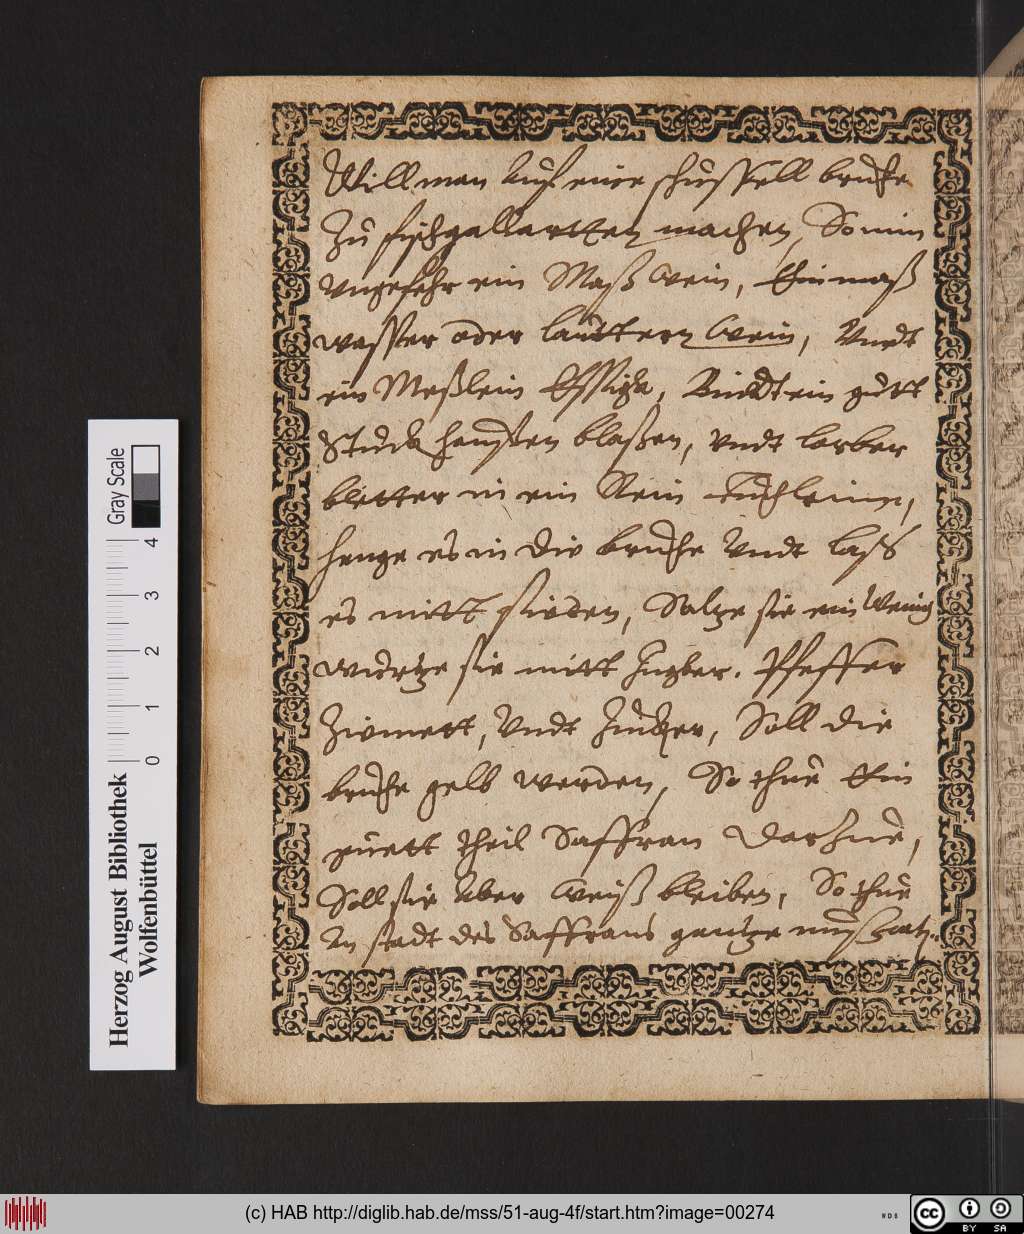 Will man Auf eine schüssell bruhe
Zu fischgallartten machen, So nim
Ungefehr ein Maß Wein, Ein maß
wasser oder lauttern Wein, Undt
ein Meßlein Essigk, Bindt ein gutt
Stuck haußen blaßen, undt lorber
bletter in ein klein tuchleinn,
henge es in die bruhe Undt laß
es mitt sieden, Saltze sie ein Wenig
wurtze sie mitt Ingber, Pfeffer
Zimett, Undt Zucker, Soll die
bruhe gelb werden, So thue Ein
guett theil Saffran darzue,
Soll sie Aber Weiß bleiben, So thue
An stadt des Saffrans gantze mußkatt
Herzog August Bibliothek
Wolfenbüttel
Gray Scale
0 1 2 3 4
(c) HAB http://diglib.hab.de/mss/51-aug-4f/start.htm?image=00274
WDB
cc
BY SA